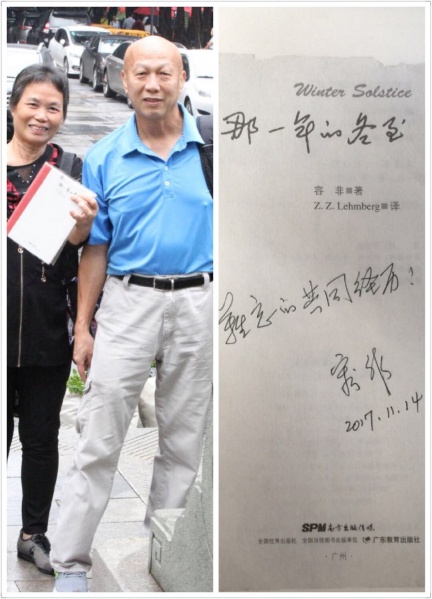 Winter Solstice
那一年的冬至
容 非■著
Z. Z. Lehmberg■译
难忘的共同经历！
容非
2017.11.14
SPM 南方出版传媒
全国优秀出版社 全国百佳图书出版单位 广东教育出版社
·广州·